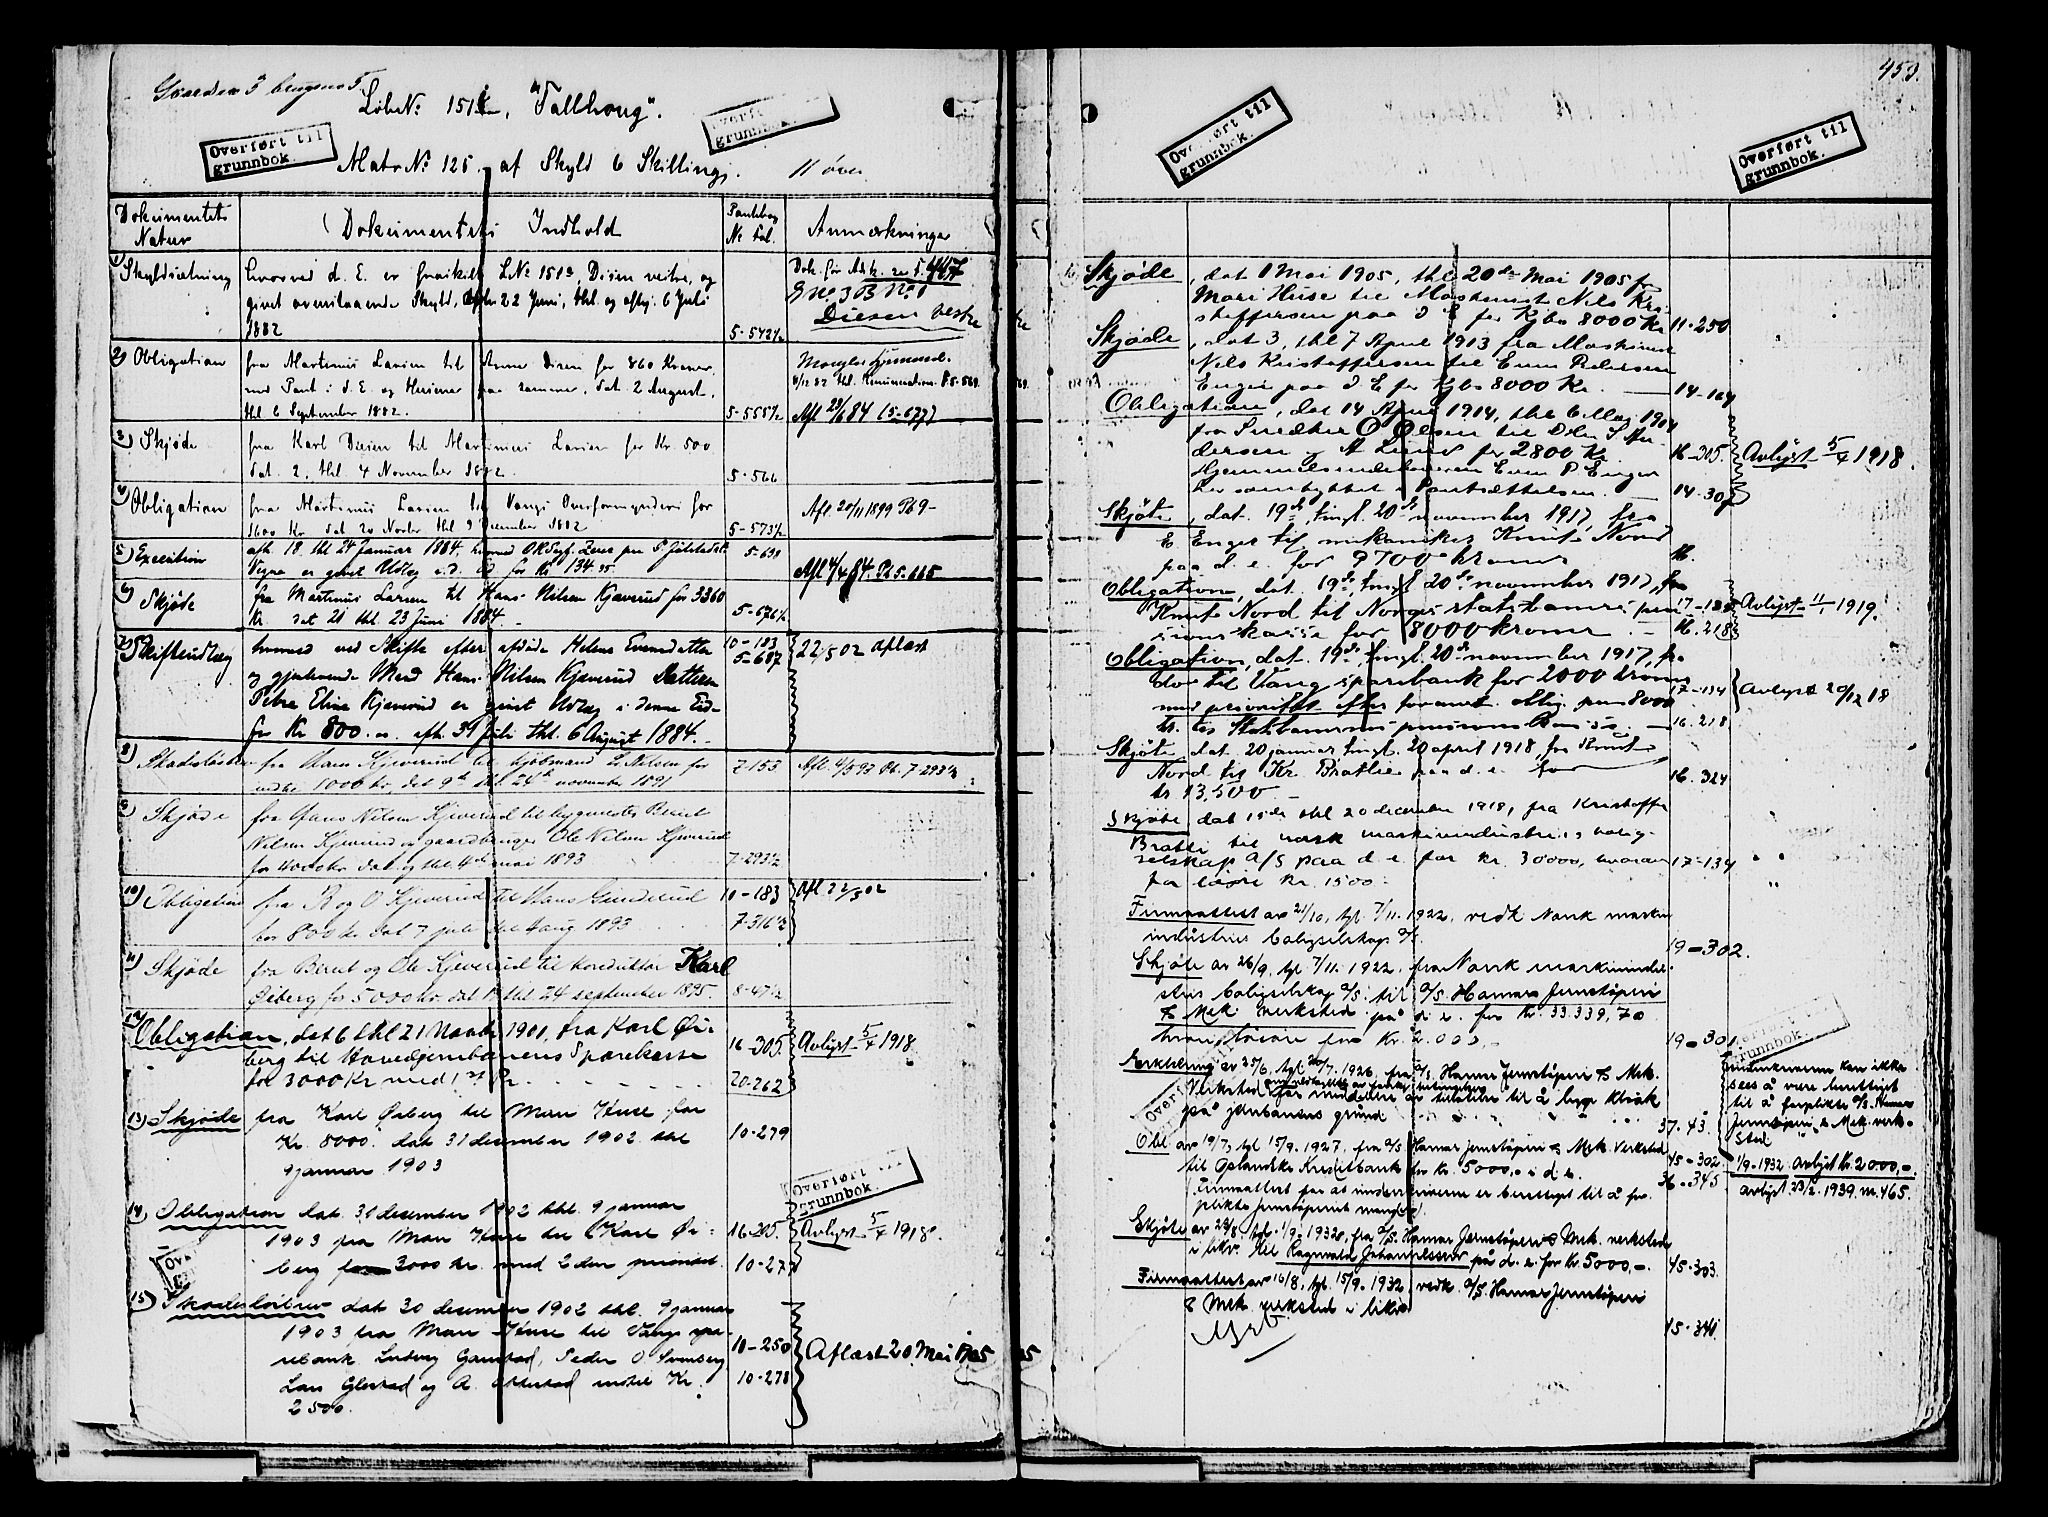 Gaarden 3 brugsno 5
Løbe No 151, "Fallhoug".
Overført til
grunnbok.
grunnbok.
Matr No 125 af Skyld 6 Skilling. 11 øre
Dokumentets
Natur
Dokumentets Indhold
Pantebog
No Fol.
Anmærkninger
1) Skyldsætning
hvorved d. E. er fraskilt LNo 151, Disen vestre, og
givet ovenstaaende Skyld, afh 22 Juni, thl. og afhj. 6 Juli
1882
5-542½
G No 3 B No 1
Disen vestre
2) Obligation
fra Martinus Larsen til Anne Disen for 860 Kroner,
med Pant i d. E. og Huserne paa samme, dat. 2 August,
thl 6 September 1882.
5-555½
Mangler Hjemmel.
Afl 23/6 84 (5-677)
3) Skjøde
fra Karl Disen til Martinus Larsen for Kr 500
dat. 2. thl. 4 November 1882.
5-566
4) Obligation
fra Martinus Larsen til Vangs Overformynderi for
1600 Kr dat 20 Novbr thl 9 December 1882
5-573½
Afl 20/11 1899 Pb9-
5) Execution
afh. 18. thl 24 Januar 1884, hvorved
er givet Udlæg i d. E. for Kr 134
5-638
Afl 4/4 84. Pb 5-665
6) Skjøde
fra Martinus Larsen til Hans Nilsen Kjæverud for 3360
Kr. dat 21 thl. 23 Juni 1884.
5-676½
7) Skifteudlæg
hvorved ved Skifte efter afdøde Helene Evensdatter
og gjenlevende Mand Hans Nilsen Kjæverud Datteren
Petra Eline Kjæverud er givet Udlæg i denne Eid-
for Kr 800. afh. 31 Juli thl. 6 August 1884.
10-183
5-687
22/5 02 aflæst
8) Skadesløsbrev
fra Hans Kjæverud til kjøbmand L. Nilsen for
indtil 1000 kr, dat 9de thl. 24de november 1891
7-153
Afl. 4/5 93 Pb. 7-293½
9) Skjøde
fra Hans Nilsen Kjæverud til bygmester Bernt
Nilsen Kjæverud og gaardbruger Ole Nilsen Kjæverud
for 4000 kr dat og thl. 4de mai 1893
7-293½
10) Obligation
fra B og O Kjæverud til Hans Gunderud
for 800 kr. dat 7 juli thl. 4 aug 1893
10-183
7-316½
Afl. 22/5 02
11) Skjøde
fra Bernt og Ole Kjæverud til konduktør Karl
Øiberg for 5000 kr. dat 17 thl 24 september 1895.
8-47½
12) Obligation, dat 6 thl 21 Marts 1901, fra Karl Øi-
berg til Hovedjernbanens Sparekasse
for 3000 Kr med 1ste Pr.
16-305.
20-262
Avlyst 5/4 1918
13) Skjøde fra Karl Øiberg til Mari Huse for
Kr. 8000. dat 31 desember 1902 thl
9 januar 1903
10-279
14) Obligation dat. 31 desember 1902 thl. 9 januar
1903 fra Mari Huse til Karl Øi-
berg for 3000 kr. med 2den prioritet.
16-305.
10-277
Avlyst 5/4 1918.
Overført til
grunnbok.
15) Skadesløsbrev dat 30 desember 1902 thl. 9 januar
1903 fra Mari Huse til Vangs spa-
rebank Ludvig Gaustad, Peder O Svenberg
Lars Glestad og A. Ottestad indtil Kr.
2500.
10-250
10-278
Aflæst 20 Mai 1905
459.
Overført til
grunnbok.
Overført til
grunnbok.
Skjøde, dat 1 Mai 1905, thl 20de Mai 1905 fra
Mari Huse til Maskinist Nils Kri-
stoffersen paa d E for Kjbs 8000 Kr
11-250
Skjøde, dat 3, thl 7 April 1913 fra Maskinist
Nils Kristoffersen til Even Pedersen
Enger paa d. E for Kjbs 8000 Kr.
14-164
Obligation, dat 14 April 1914, thl 6 Mai 1914
fra Snedker O Olsen til S An-
dersen og A Lund for 2800 Kr.
Hjemmelsindehaveren Even P Enger
har samtykket i Pantsættelsen.
16-305.
14-307
Avlyst 5/4 1918.
Skjøte, dat. 19de, tingl. 20de november 1917, fra
E Enger til mekaniker Knut Nord
paa d. e. for 9700 kroner
16.
Obligation, dat. 19de, tingl 20de november 1917, fra
Knut Nord til Norges statsbaners pen-
sionskasse for 8000 kroner.
16.218
Avlyst 11/1 1919.
Obligation, dat. 19de, tingl. 20de november 1917, fra
do til Vang sparebank for 2000 kroner
med prioritet efter foranst. oblig. paa 8000
kr. til Statsbanernes pensionskasse.
17-134
16.218
Avlyst 20/12 18
Skjøte dat. 20 januar tingl. 20 april 1918 fra Knut
Nord til Kr. Bratlie paa d. e. for
kr 13,500
16. 324
Skjøte dat 15de thl 20 december 1918, fra Kristoffer
Bratli til norsk maskinindustries bolig-
selskap A/S paa d. e. for kr. 30000, hvorav
for løsøre Kr. 1500.
17-134
Firmaattest av 21/10, tgl. 7/11. 1922, vedk Norsk maskin
industries boligselskap A/S.
19-302.
Skjøte av 26/9, tgl. 7/11. 1922, fra Norsk maskinindu-
stries boligselskap A/S til A/S Hamar Jernstøperi
& Mek. Verksted på d. e. for kr. 33.339,70
hvorav løsøre for Kr. 2.000,-
19-301
Erklæring av 25/6, tgl 20/7. 1926, fra A/S Hamar Jernstøperi & Mek.
Verksted om tillatelse til å bygge kloak
på jernbanens grund
37-43.
Underskriverne kan ikke
sees å være berettiget
til å forplikte A/S Hamar
Jernstøperi & Mek. verk-
sted
Obl av 19/7, tgl 15/9. 1927, fra A/S Hamar Jernstøperi & Mek. Verksted
til Oplandske Kreditbank for kr. 5000,- i d. e.
Firmaattest for at underskriverne er berettiget til å for-
plikte Jernstøperiet mangler.
45-302
36-345
1/9-1932 avlyst kr. 2000,-.
avlyst 23/2. 1939. nr. 465.
Skjøte av 23/8, tgl. 1/9. 1932, fra A/S Hamar Jernstøperi & Mek. verksted
i likv. til Ragnvald Johannessen på d. e. for kr. 5000,-.
45-303.
Firmaattest av 16/8, tgl. 15/9. 1932, vedk. A/S Hamar Jernstøperi
& Mek. verksted i likv.
45-340.